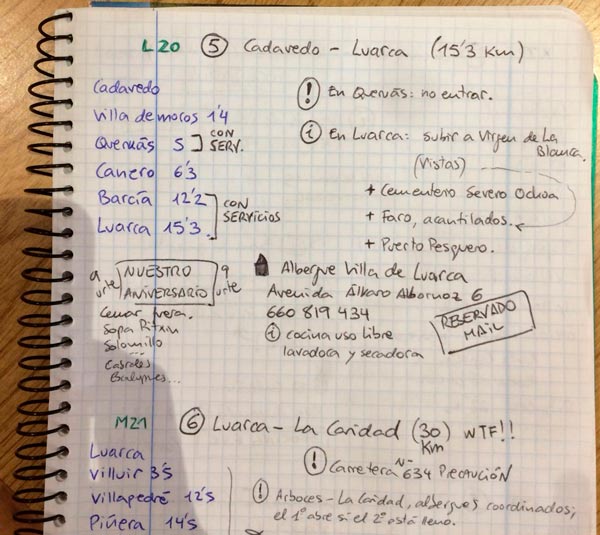 L20 ⑤ Cadavedo - Luarca (15'3 Km)
Cadavedo
Villademoros 1'4
Queruás 5 ] CON SERV.
Canero 6'3
Barcía 12'2
Luarca 15'3
CON SERVICIOS
! En Queruás: no entrar.
i En Luarca: subir a Virgen de La Blanca.
(Vistas)
+ Cementerio Severo Ochoa
+ Faro, acantilados.
+ Puerto Pesquero.
NUESTRO
ANIVERSARIO
Cenar fuera.
Sopa
Solomillo
...
Albergue Villa de Luarca
Avenida Álvaro Albornoz 6
660 819 434
i cocina uso libre
lavadora y secadora
RESERVADO
MAIL
M21 ⑥ Luarca - La Caridad (30) WTF!!
Km
Luarca
Villuir 3'5
Villapedré 12'5
Piñera 14'5
! Carretera N-634 PRECAUCIÓN
! Arboces - La Caridad, albergues coordinados;
el 1º abre si el 2º está lleno.